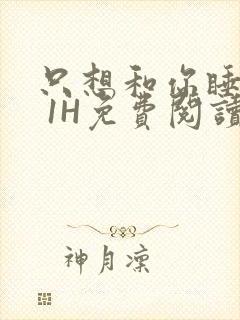 只想和你睡
1H免費閱讀
神月凜